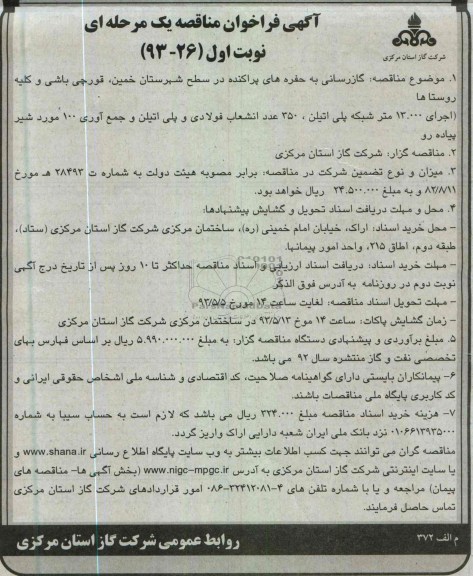 آگهی فراخوان مناقصه یک مرحله ای
نوبت اول (۲۶-۹۳)
شرکت گاز استان مرکزی
۱. موضوع مناقصه: گازرسانی به حفره های پراکنده در سطح شهرستان خمین، قورچی باشی و کلیه
روستا ها
(اجرای ۱۳.۰۰۰ متر شبکه پلی اتیلن ، ۳۵۰ عدد انشعاب فولادی و پلی اتیلن و جمع آوری ۱۰۰ مورد شیر
پیاده رو
۲. مناقصه گزار: شرکت گاز استان مرکزی
۳. میزان و نوع تضمین شرکت در مناقصه: برابر مصوبه هیئت دولت به شماره ت ۲۸۴۹۳ هـ مورخ
۸۲/۸/۱۱ و به مبلغ ۲۴.۵۰۰.۰۰۰ ریال خواهد بود.
۴. محل و مهلت دریافت اسناد تحویل و گشایش پیشنهادها:
- محل خرید اسناد: اراک، خیابان امام خمینی (ره)، ساختمان مرکزی شرکت گاز استان مرکزی (ستاد)،
طبقه دوم، اطاق ۲۱۵، واحد امور پیمانها.
- مهلت خرید اسناد: دریافت اسناد ارزیابی و اسناد مناقصه حداکثر تا ۱۰ روز پس از تاریخ درج آگهی
نوبت دوم در روزنامه به آدرس فوق الذکر
- مهلت تحویل اسناد مناقصه: لغایت ساعت ۱۴ مورخ ۹۳/۵/۵
- زمان گشایش پاکات: ساعت ۱۴ موخ ۹۳/۵/۱۳ در ساختمان مرکزی شرکت گاز استان مرکزی
۵. مبلغ برآوردی و پیشنهادی دستگاه مناقصه گزار: به مبلغ ۵.۹۹۰.۰۰۰.۰۰۰ ریال بر اساس فهارس بهای
تخصصی نفت و گاز منتشره سال ۹۲ می باشد.
۶- پیمانکاران بایستی دارای گواهینامه صلاحیت، کد اقتصادی و شناسه ملی اشخاص حقوقی ایرانی و
کد کاربری پایگاه ملی مناقصات باشند.
۷- هزینه خرید اسناد مناقصه مبلغ ۳۲۴.۰۰۰ ریال می باشد که لازم است به حساب سیبا به شماره
۰۱۰۶۶۱۳۹۳۵۰۰۰ نزد بانک ملی ایران شعبه دارایی اراک واریز گردد.
مناقصه گران می توانند جهت کسب اطلاعات بیشتر به وب سایت پایگاه اطلاع رسانی www.shana.ir و
یا سایت اینترنتی شرکت گاز استان مرکزی به آدرس www.nigc-mpgc.ir (بخش آگهی ها- مناقصه های
پیمان) مراجعه و یا با شماره تلفن های ۴-۰۸۶-۳۲۴۱۲۰۸۱ امور قراردادهای شرکت گاز استان مرکزی
تماس حاصل فرمایند.
م الف ۳۷۲
روابط عمومی شرکت گاز استان مرکزی